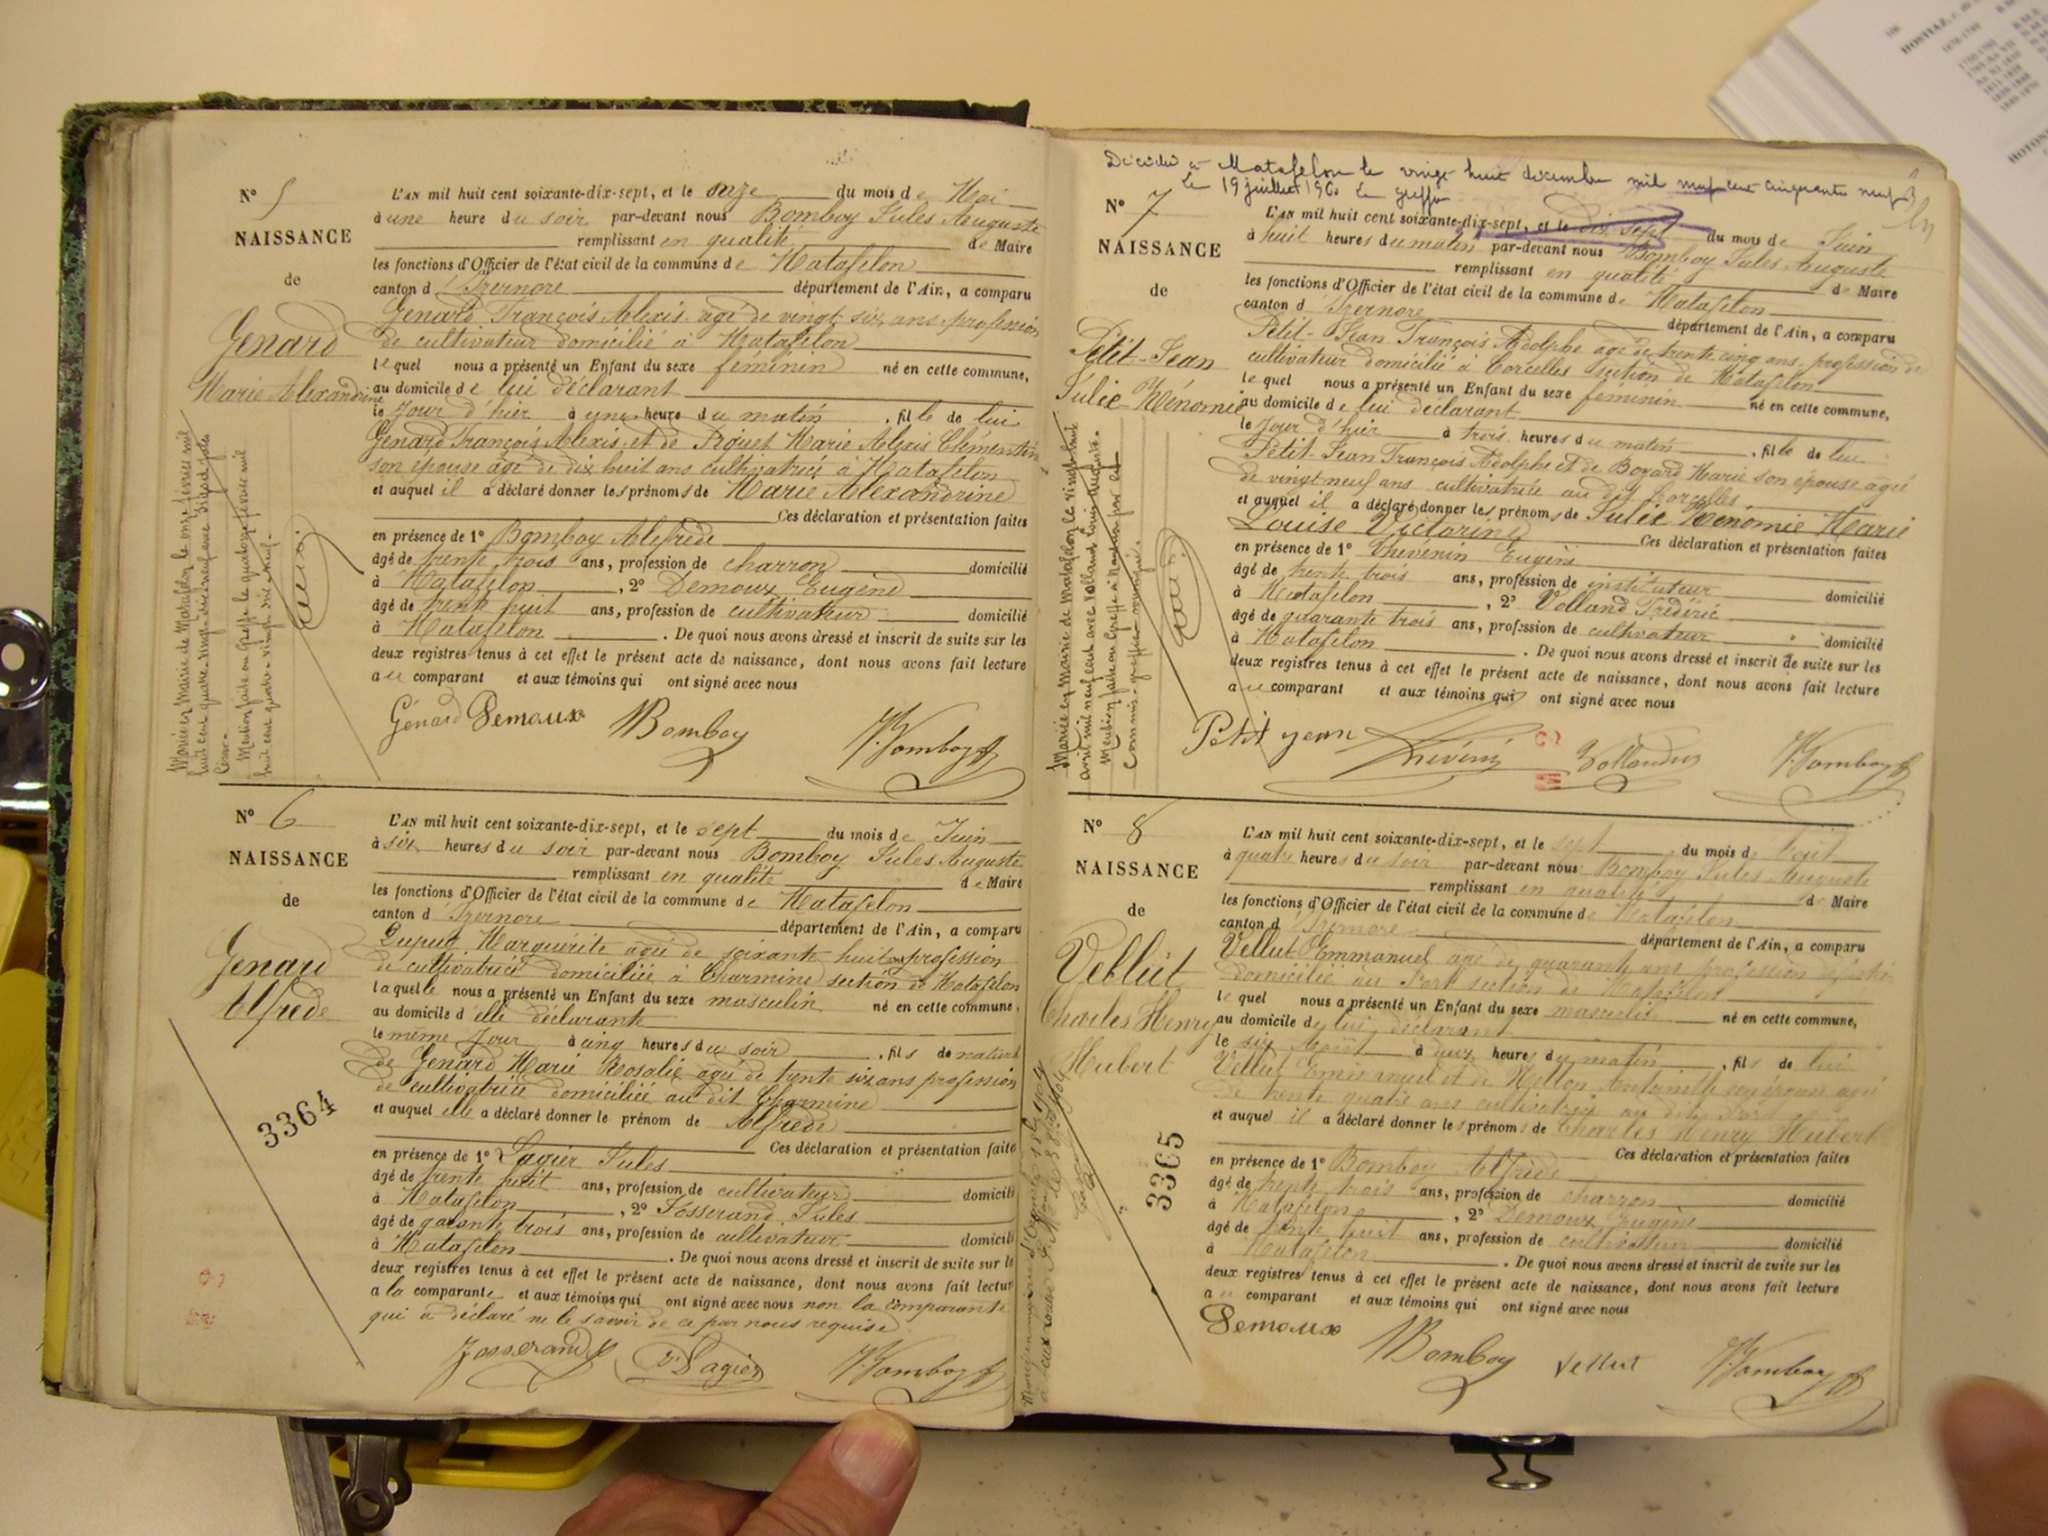 N° 5
NAISSANCE
de
Genard
Marie Alexandrine
L'AN mil huit cent soixante-dix-sept, et le onze du mois de Mai
à une heure du soir par-devant nous Bomboy Jules Auguste
remplissant en qualité de Maire
les fonctions d'Officier de l'état civil de la commune de Matafelon
canton d'Izernore département de l'Ain, a comparu
Genard François Alexis agé de vingt six ans profession
de cultivateur domicilié à Matafelon
lequel nous a présenté un Enfant du sexe féminin né en cette commune,
au domicile de lui déclarant
le jour d'hier à une heure du matin , fille de lui
Genard François Alexis et de Piquet Marie Alexis Clémentine
son épouse agé de dix huit ans cultivatrice à Matafelon
et auquel il a déclaré donner les prénoms de Marie Alexandrine
Ces déclaration et présentation faites
en présence de 1° Bomboy Alfrede
âgé de trente trois ans, profession de charron domicilié
à Matafelon , 2° Demoux Eugène
âgé de trente huit ans, profession de cultivateur domicilié
à Matafelon . De quoi nous avons dressé et inscrit de suite sur les
deux registres tenus à cet effet le présent acte de naissance, dont nous avons fait lecture
au comparant et aux témoins qui ont signé avec nous
Génard Demoux Bomboy J. Bomboy
Mariée en Mairie de Matafelon le onze février mil
huit cent quatre vingt dix neuf avec
Mention faite au Greffe le quatorze février mil
huit cent quatre vingt dix neuf.
N° 6
NAISSANCE
de
Genard
Alfrede
3364
L'AN mil huit cent soixante-dix-sept, et le sept du mois de Juin
à six heures du soir par-devant nous Bomboy Jules Auguste
remplissant en qualité de Maire
les fonctions d'Officier de l'état civil de la commune de Matafelon
canton d'Izernore département de l'Ain, a comparu
Dupuy Marguerite agée de soixante huit ans profession
de cultivatrice domiciliée à Charmine section de Matafelon
laquelle nous a présenté un Enfant du sexe masculin né en cette commune,
au domicile d'elle déclarante
le même jour à cinq heures du soir , fils de naturel
de Genard Marie Rosalie agée de trente six ans profession
de cultivatrice domiciliée au dit Charmine
et auquel elle a déclaré donner le prénom de Alfrede
Ces déclaration et présentation faites
en présence de 1° Lagier Jules
âgé de trente huit ans, profession de cultivateur domicilié
à Matafelon , 2° Josserand Jules
âgé de quarante trois ans, profession de cultivateur domicilié
à Matafelon . De quoi nous avons dressé et inscrit de suite sur les
deux registres tenus à cet effet le présent acte de naissance, dont nous avons fait lecture
a la comparante et aux témoins qui ont signé avec nous non la comparante
qui a déclaré ne le savoir de ce par nous requise
Josserand J. Lagier J. Bomboy
Décédée à Matafelon le vingt huit décembre mil neuf cent cinquante neuf
Le 19 juillet 1960 Le greffier
N° 7
NAISSANCE
de
Petit-Jean
Julie Hénomie
L'AN mil huit cent soixante-dix-sept, et le dix sept du mois de Juin
à huit heures du matin par-devant nous Bomboy Jules Auguste
remplissant en qualité de Maire
les fonctions d'Officier de l'état civil de la commune de Matafelon
canton d'Izernore département de l'Ain, a comparu
Petit-Jean François Adolphe agé de trente cinq ans, profession de
cultivateur domicilié à Corcelles section de Matafelon
lequel nous a présenté un Enfant du sexe féminin né en cette commune,
au domicile de lui déclarant
le jour d'hier à trois heures du matin , fille de lui
Petit-Jean François Adolphe et de Boyard Marie son épouse agée
de vingt neuf ans cultivatrice au dit Corcelles
et auquel il a déclaré donner les prénoms de Julie Hénomie Marie
Louise Victorine Ces déclaration et présentation faites
en présence de 1° Thevenin Eugène
âgé de trente trois ans, profession de instituteur domicilié
à Matafelon , 2° Volland Fréderic
âgé de quarante trois ans, profession de cultivateur domicilié
à Matafelon . De quoi nous avons dressé et inscrit de suite sur les
deux registres tenus à cet effet le présent acte de naissance, dont nous avons fait lecture
au comparant et aux témoins qui ont signé avec nous
Petit jean Thévenin Volland J. Bomboy
Mariée en Mairie de Matafelon le vingt huit
avril mil neuf cent avec Volland Louis
Mention faite au Greffe à Nantua par le
Commis-greffier soussigné.
N° 8
NAISSANCE
de
Vellut
Charles Henry
Hubert
3365
L'AN mil huit cent soixante-dix-sept, et le sept du mois de Août
à quatre heures du soir par-devant nous Bomboy Jules Auguste
remplissant en qualité de Maire
les fonctions d'Officier de l'état civil de la commune de Matafelon
canton d'Izernore département de l'Ain, a comparu
Vellut Emmanuel agé de quarante ans profession
domicilié au Port section de Matafelon
lequel nous a présenté un Enfant du sexe masculin né en cette commune,
au domicile de lui déclarant
le six Août à deux heures du matin , fils de lui
Vellut Emmanuel et de Millon Antoinette son épouse agée
de trente quatre ans cultivatrice au dit Port
et auquel il a déclaré donner les prénoms de Charles Henry Hubert
Ces déclaration et présentation faites
en présence de 1° Bomboy Alfrède
âgé de trente trois ans, profession de charron domicilié
à Matafelon , 2° Demoux Eugène
âgé de trente huit ans, profession de cultivateur domicilié
à Matafelon . De quoi nous avons dressé et inscrit de suite sur les
deux registres tenus à cet effet le présent acte de naissance, dont nous avons fait lecture
au comparant et aux témoins qui ont signé avec nous
Demoux Bomboy Vellut J. Bomboy